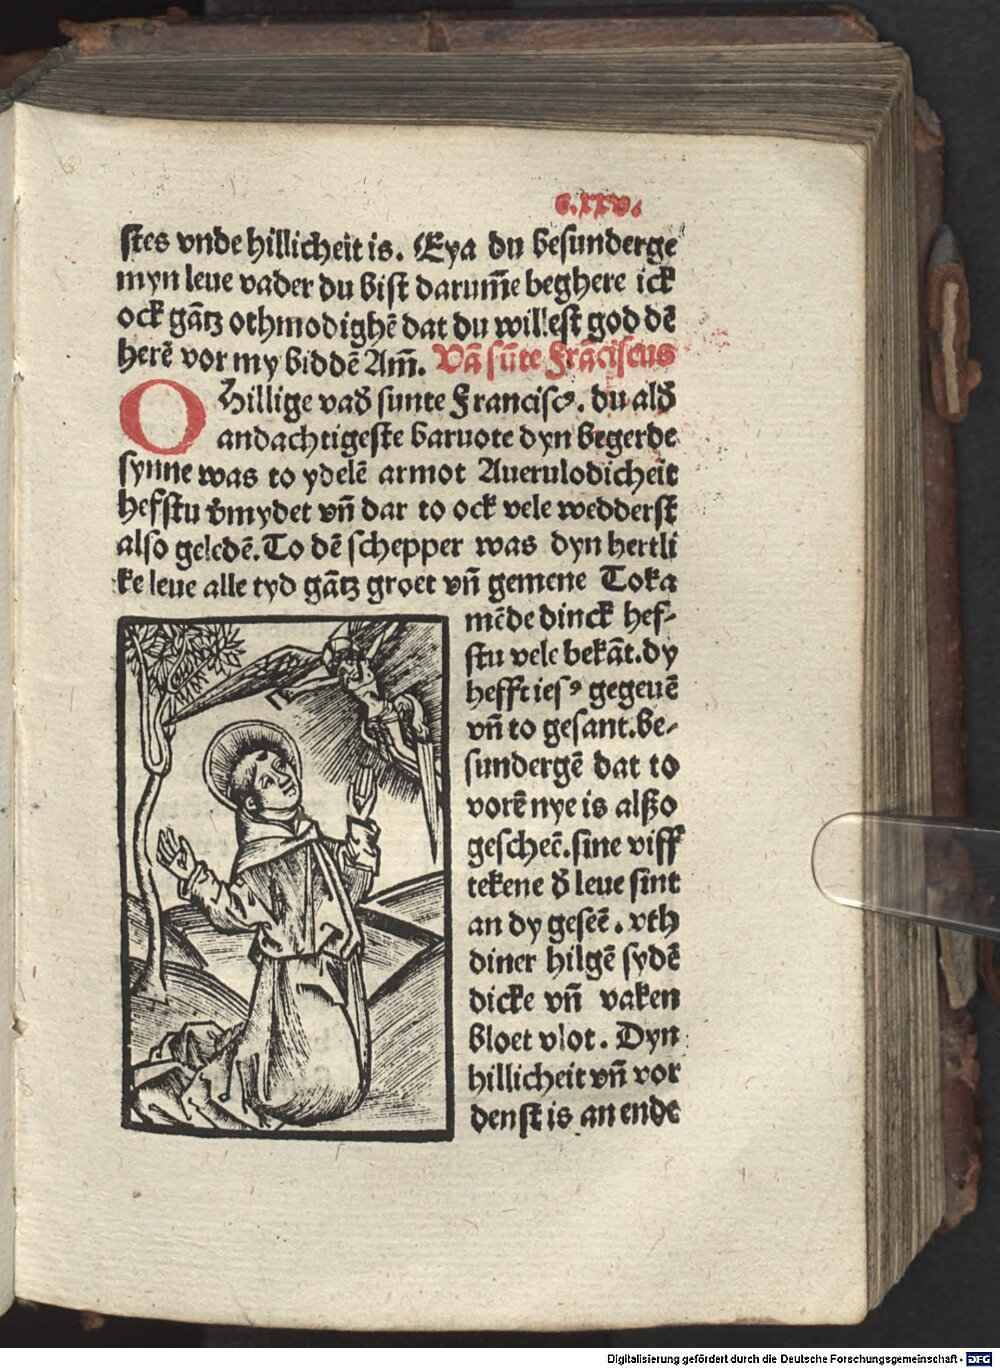 c.xxv.
stes vnde hillicheit is. Eya du besunderge
myn leue vader du bist darum̄e beghere ick
ock gātz othmodighē dat du willest god dē
herē vor my biddē Am̄. Vā sūte Frāciscus
O Hillige vad̄ sunte Franciscꝰ. du ald̄
andachtigeste baruote dyn begerde
synne was to ydelē armot Auerulodicheit
hefstu v̄mydet vn̄ dar to ock vele wedderst
also geledē. To dē schepper was dyn hertli
ke leue alle tyd gātz groet vn̄ gemene Toka
mēde dinck hef-
stu vele bekāt. dy
hefft iesꝰ gegeuē
vn̄ to gesant. be-
sundergē dat to
vorē nye is alßo
gescheē. sine viff
tekene d̄ leue sint
an dy geseē. vth
diner hilgē sydē
dicke vn̄ vaken
bloet vlot. Dyn
hillicheit vn̄ vor
denst is an ende
Digitalisierung gefördert durch die Deutsche Forschungsgemeinschaft - DFG